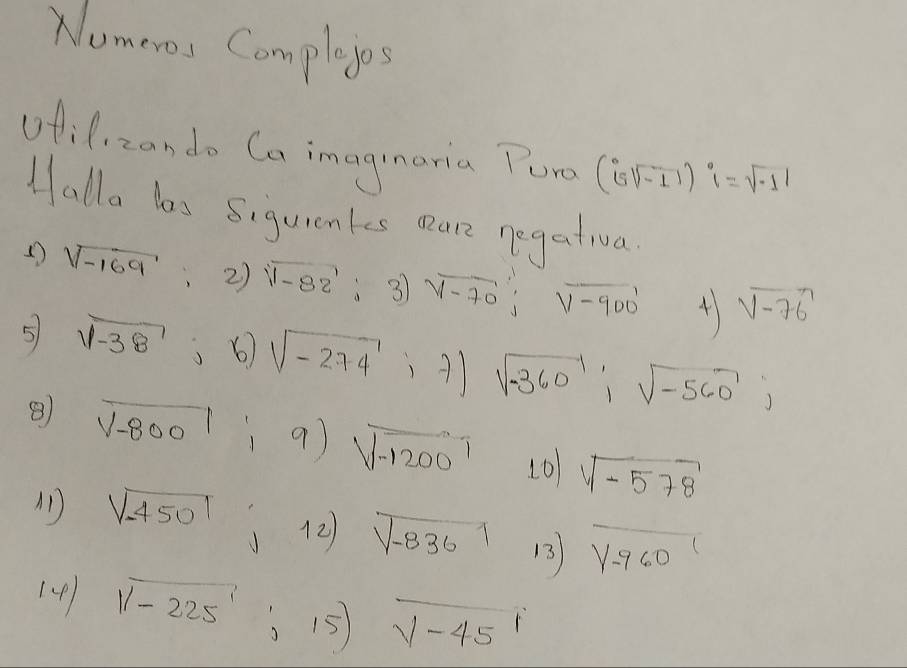 Numeros Complejos
Utilizando la imaginaria Pura (i=√-1) i=√-1
Halla las siguientes raiz negativa.
1) √-169 ; 2) √-82 ; 3) √-70 ; √-900 4) √-76
5) √-38 ; 6) √-274 ; 7) √-360 ; √-560 ;
8) √-800 ; 9) √-1200 10) √-578
11) √-450 ; 12) √-836 13) √-960
14) √-225 ; 15) √-45